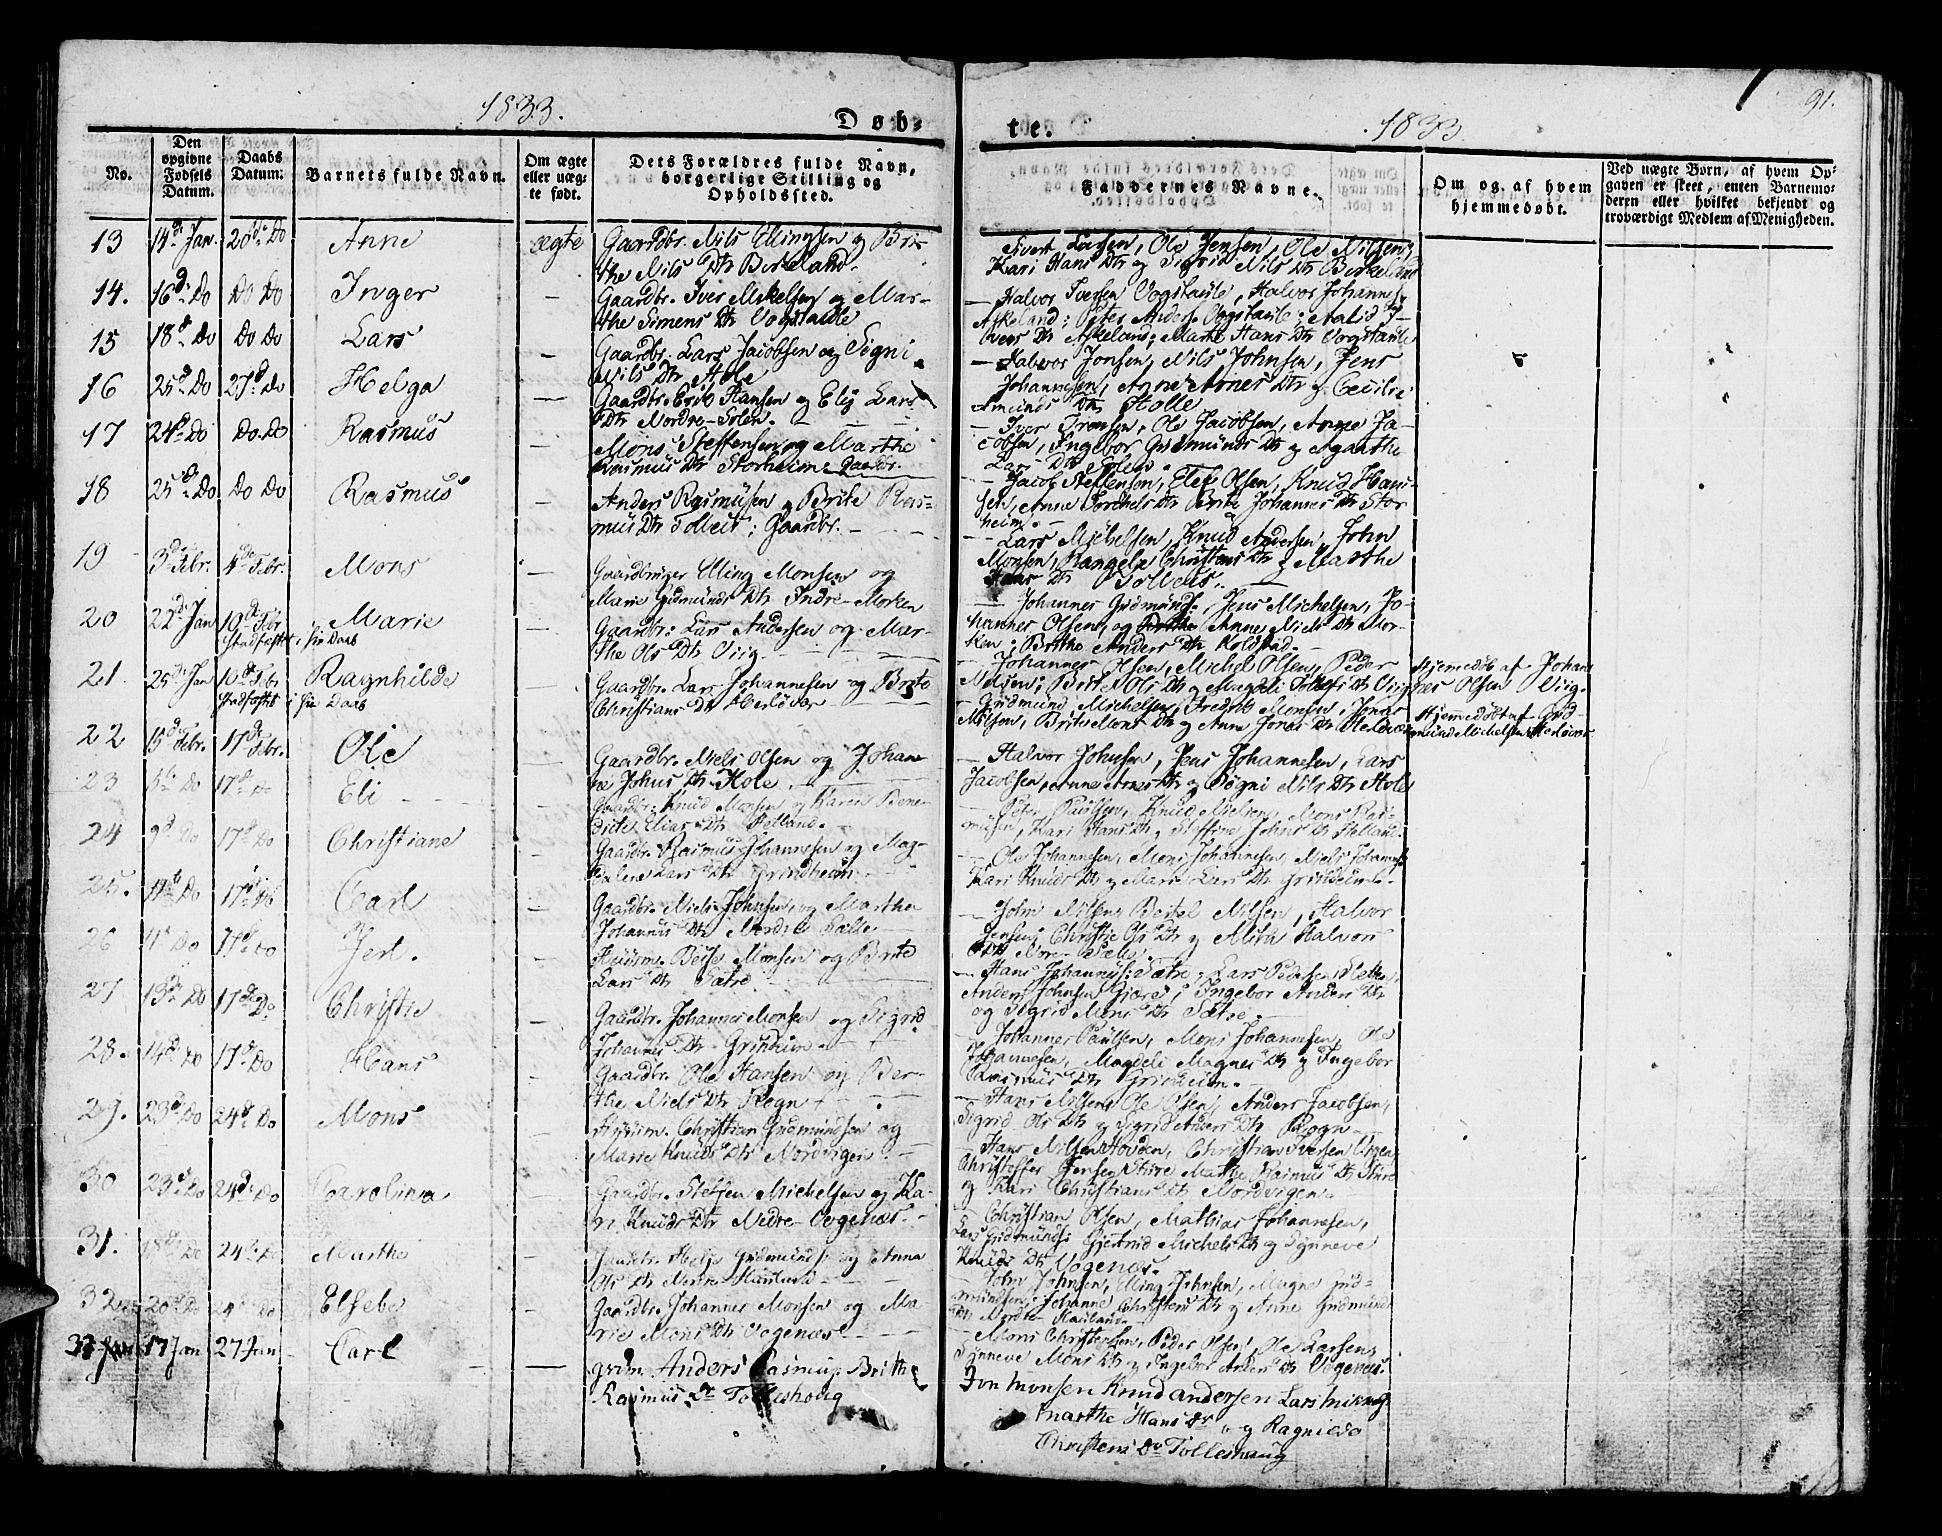 1833.
Døb-
te.
1833
91.
No.
Den opgivne Fødsels Datum.
Daabs Datum.
Barnets fulde Navn.
Om ægte eller uægte født.
Dets Forældres fulde Navn, borgerlige Stilling og Opholdssted.
Faddernes Navne.
Om og af hvem hjemmedøbt.
Ved uægte Børn, af hvem Opgaven er skeet, enten Barnemoderen eller hvilket bekjendt og troværdigt Medlem af Menigheden.
13 14d Jan 20d Do Anne ægte Gaardbr. Nils Ellingsen og Bri-
the Nils Dtr Birkeland.
Sivert Larsen, Ole Jensen, Ole Nilsen,
Kari Hans Dtr og Sigrid Nils Dtr Birkeland
14. 16d Do Do Do Inger — Gaardbr. Iver Mikelsen og Mar-
the Simens Dtr Vogstaule
Halvor Iversen Vogstaule, Halvor Johannes.
Askeland; Peter Anders. Vogstaule; Malid I-
vers Dtr Askeland; Marte Hans Dtr Vogstaule
15 18d Do Do Do Lars — Gaardbr. Lars Jacobsen og Signi
Nils Dtr Hole
Halvor Jonsen, Nils Johnsen, Jens
Johannesen, Anne Arnes Dtr og Cecilie
Amunds Dtr Holle
16 25d Do 27d Do Helga — Gaardbr. Erik Hansen og Elij Lars
Dtr Nordre-Tolen.
Iver Tronsen, Ole Jacobsen, Anne Ja-
cobsen, Ingebor Gudmunds Dtr og Agaathe
Lars Dtr
17 24d Do Do Do Rasmus — Mons Steffensen og Marthe
Rasmus Dtr Storheim Gaardbr.
Jacob Steffensen, Elef Olsen, Knud Han-
sen, Anne Torchels Dtr Brite Johannes Dtr Stor
heim.
18 25d Do Do Do Rasmus — Anders Rasmusen og Brite Ras-
mus Dtr Tolleus; Gaardbr.
Lars Michelsen, Knud Andersen, John
Monsen, Rangele Christens Dtr og Marthe
Hans Dtr Tolleus.
19 3d Febr. 4de Febr. Mons — Gaardbruger Elling Monsen og
Marie Gudmunds Dtr Indre-Morken
Johannes Gudmunds., Jens Michelsen, Jo-
hannes Olsen, og Anne Niels Dtr Mor-
ken; Brithe Anders Dtr Kolstad.
20 22d Jan 10de Febr Marie — Gaardbr: Lars Andersen og Mar-
stadfæstet i Kir Daab
the Ols Dtr Viig
Johannes Olsen, Michel Olsen, Peder
Nilsen; Brite Ols Dtr og Magdeli Tollefs Dtr Viig
Hjemedøb af Johan
nes Olsen Viig.
21. 25d Jan 10d Febr Ragnhilde
stadfæstet i Kir Daab
Gaardbr. Lars Johannesen og Brite
Christians Dtr Herløver
Gudmund Michelsen, Fredrik Monsen, Jonas
Nilsen, Brite Mons Dtr og Anne Jonas Dtr Herløver
Hjemedøbt af Gud-
mund Michelsen Herløver
22 15d Febr. 17de Febr. Ole — Gaardbr. Niels Olsen og Johan-
ne Johns Dtr Hole.
Halvor Johnsen, Jens Johannesen, Lars
Jacobsen, Anne Arnes Dtr og Sögni Nils Dtr Hole
23 5te Do 17de Do Eli — Gaardbr: Knud Monsen og Karen Bene-
dicte Elias Dtr Helland.
Peter Paulsen, Knud Nielsen, Mons Ras-
musen, Kari Hans Dtr og Steffine Johns Dtr Helland.
24 9d Do 17d Do Christiane — Gaardbr. Rasmus Johannesen og Mag-
dalene Lars Dtr Grindheim.
Ole Johannesen, Mons Johannesen, Niels Johannes.
Kari Knuds Dtr og Mari Lars Dtr Grindheim.
25. 11te Do 17d Do Carl — Gaardbr. Niels Johnsen og Marthe
Johannes Dtr Nordre
John Nilsen, Bertel Nilsen, Halvor
Jensen, Christie Ols Dtr og Halvors
Dtr Nore
26 11d Do 17d Do — Huusm. Monsen og Brite
Lars Dtr Sætre
Hans Johannes: Sætre; Lars Pedersen,
Anders Johnsen Gjære; Ingebor Anders Dtr
og Sigrid Mons Dtr Sætre.
27 13d Do 17de Do Christie — Gaardbr. Johannes Monsen og Sigrid
Johannes Dtr Grinheim.
Johannes Paulsen, Mons Johannesen, Ole
Johannesen, Magdeli Magnes Dtr og Ingebor
Rasmus Dtr Grinheim.
28. 14d Do 17d Do Hans — Gaardbr. Ole Hansen og Ber-
the Niels Dtr Rogn
Hans Nilsen, Ole Olsen, Anders Jacobsen,
Sigrid Ols Dtr og Sigrid Anders Dtr Rogn
29. 23d Do 24d Do Mons — Huusm. Christian Gudmundsen og
Marie Knuds Dtr Nordvigen.
Hans Nilsen Hovden, Christian Iversen
Christoffer Jensen Sture Marthe Rasmus Dtr Sture
og Kari Christians Dtr Nordvigen.
30 23d Do 24d Do Carolina — Gaardbr. Steffen Michelsen og Ka-
ri Knuds Dtr Nedre-Vogenæs.
Christian Olsen, Mathias Johannesen,
Lars Gudmunds; Gjertrud Michels Dtr og Synneve
Knuds Dtr Vogenæs.
31. 18d Do 24d Do Marthe — Gaardbr. Helje Gudmunds. og Anna
Ols Dtr
John Johnsen, Elling Johnsen, Magne Gud-
mundsen, Johanne Christens Dtr og Anne Gudmunds
Dtr Nordre
32 20d Do 24d Do Elsebe Gaardbr. Johannes Monsen og Ma
rie Mons Dtr Vogenæs
Mons Christensen, Peder Olsen, Ole Larsen,
Synneve Mons Dtr og Ingebor Anders Dtr Vogenæs.
33 17 Jan 27 Jan Carl — — grdm. Anders Rasmus. Brithe
Rasmus Dr Tolleshoug
Jon Monsen Knud andersen Lars
marthe Hans Dr og Ragnilda
Christens Dr Tolleshoug